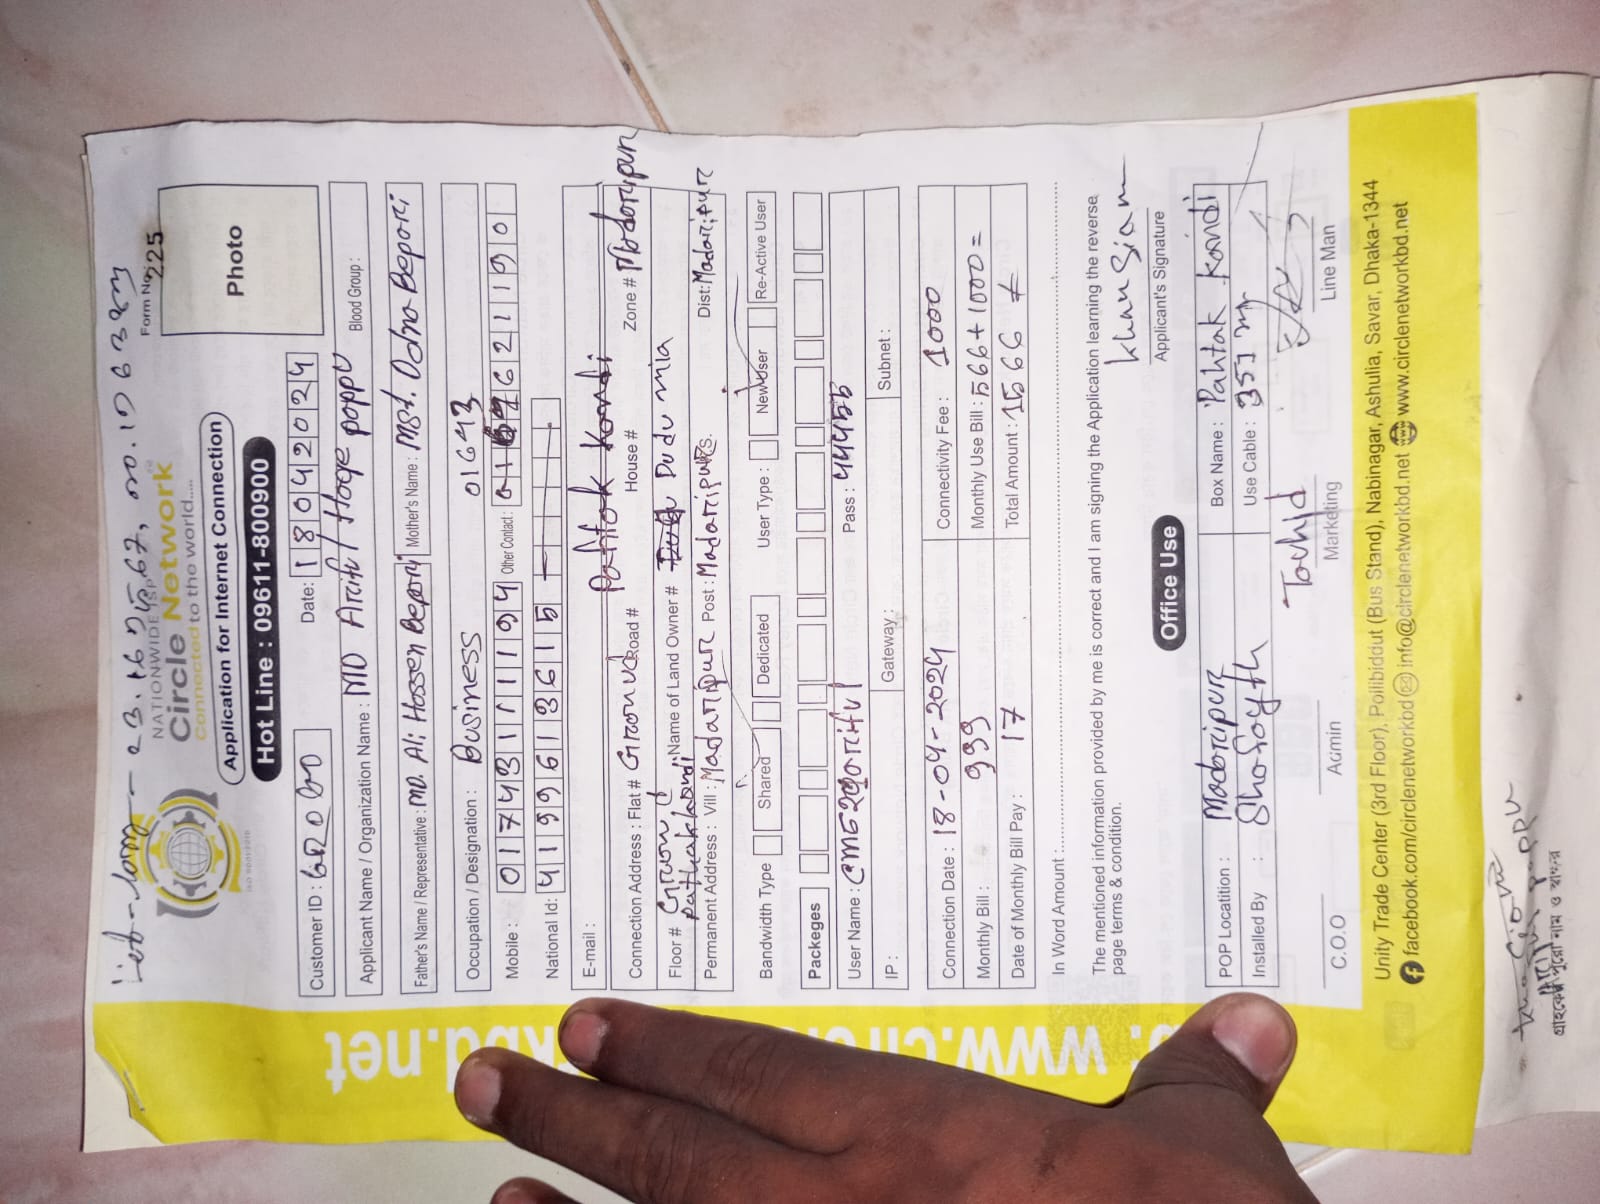 Form No. 225
NATIONWIDE ISP
Circle Network
Connected to the world.....
Photo
Application for Internet Connection
Hot Line : 09611-800900
Customer ID :
Date: 18042024
Applicant Name / Organization Name : MD Ariful Hoqe poppu
Blood Group :
Father's Name / Representative : MD. Ali Hossen Bepari
Mother's Name : Mst.
Occupation / Designation : Business
01643
Mobile : 01743111194
Other Contact : 621190
National Id: 4199613615
E-mail :
Connection Address : Flat# Road # House # Zone #
Floor # Name of Land Owner # Dudu mia
Permanent Address : Vill : Madaripur Post : Madaripur Dist: Madaripur
Bandwidth Type Shared Dedicated User Type : New User Re-Active User
Packeges
User Name : Pass : 44455
IP : Gateway : Subnet :
Connection Date : 18-04-2024 Connectivity Fee : 1000
Monthly Bill : 999 Monthly Use Bill : 566+1000=
Date of Monthly Bill Pay : 17 Total Amount : 1566
In Word Amount :
The mentioned information provided by me is correct and I am signing the Application learning the reverse
page terms & condition.
Khan Siam
Applicant's Signature
Office Use
POP Location : Madaripur Box Name : Pahtak Kandi
Installed By : Use Cable : 351 m
Towhid
C.O.O Admin Marketing Line Man
Unity Trade Center (3rd Floor), Pollibiddut (Bus Stand), Nabinagar, Ashulia, Savar, Dhaka-1344
facebook.com/circlenetworkbd info@circlenetworkbd.net www.circlenetworkbd.net
গ্রাহকের পুরো নাম ও স্বাক্ষর